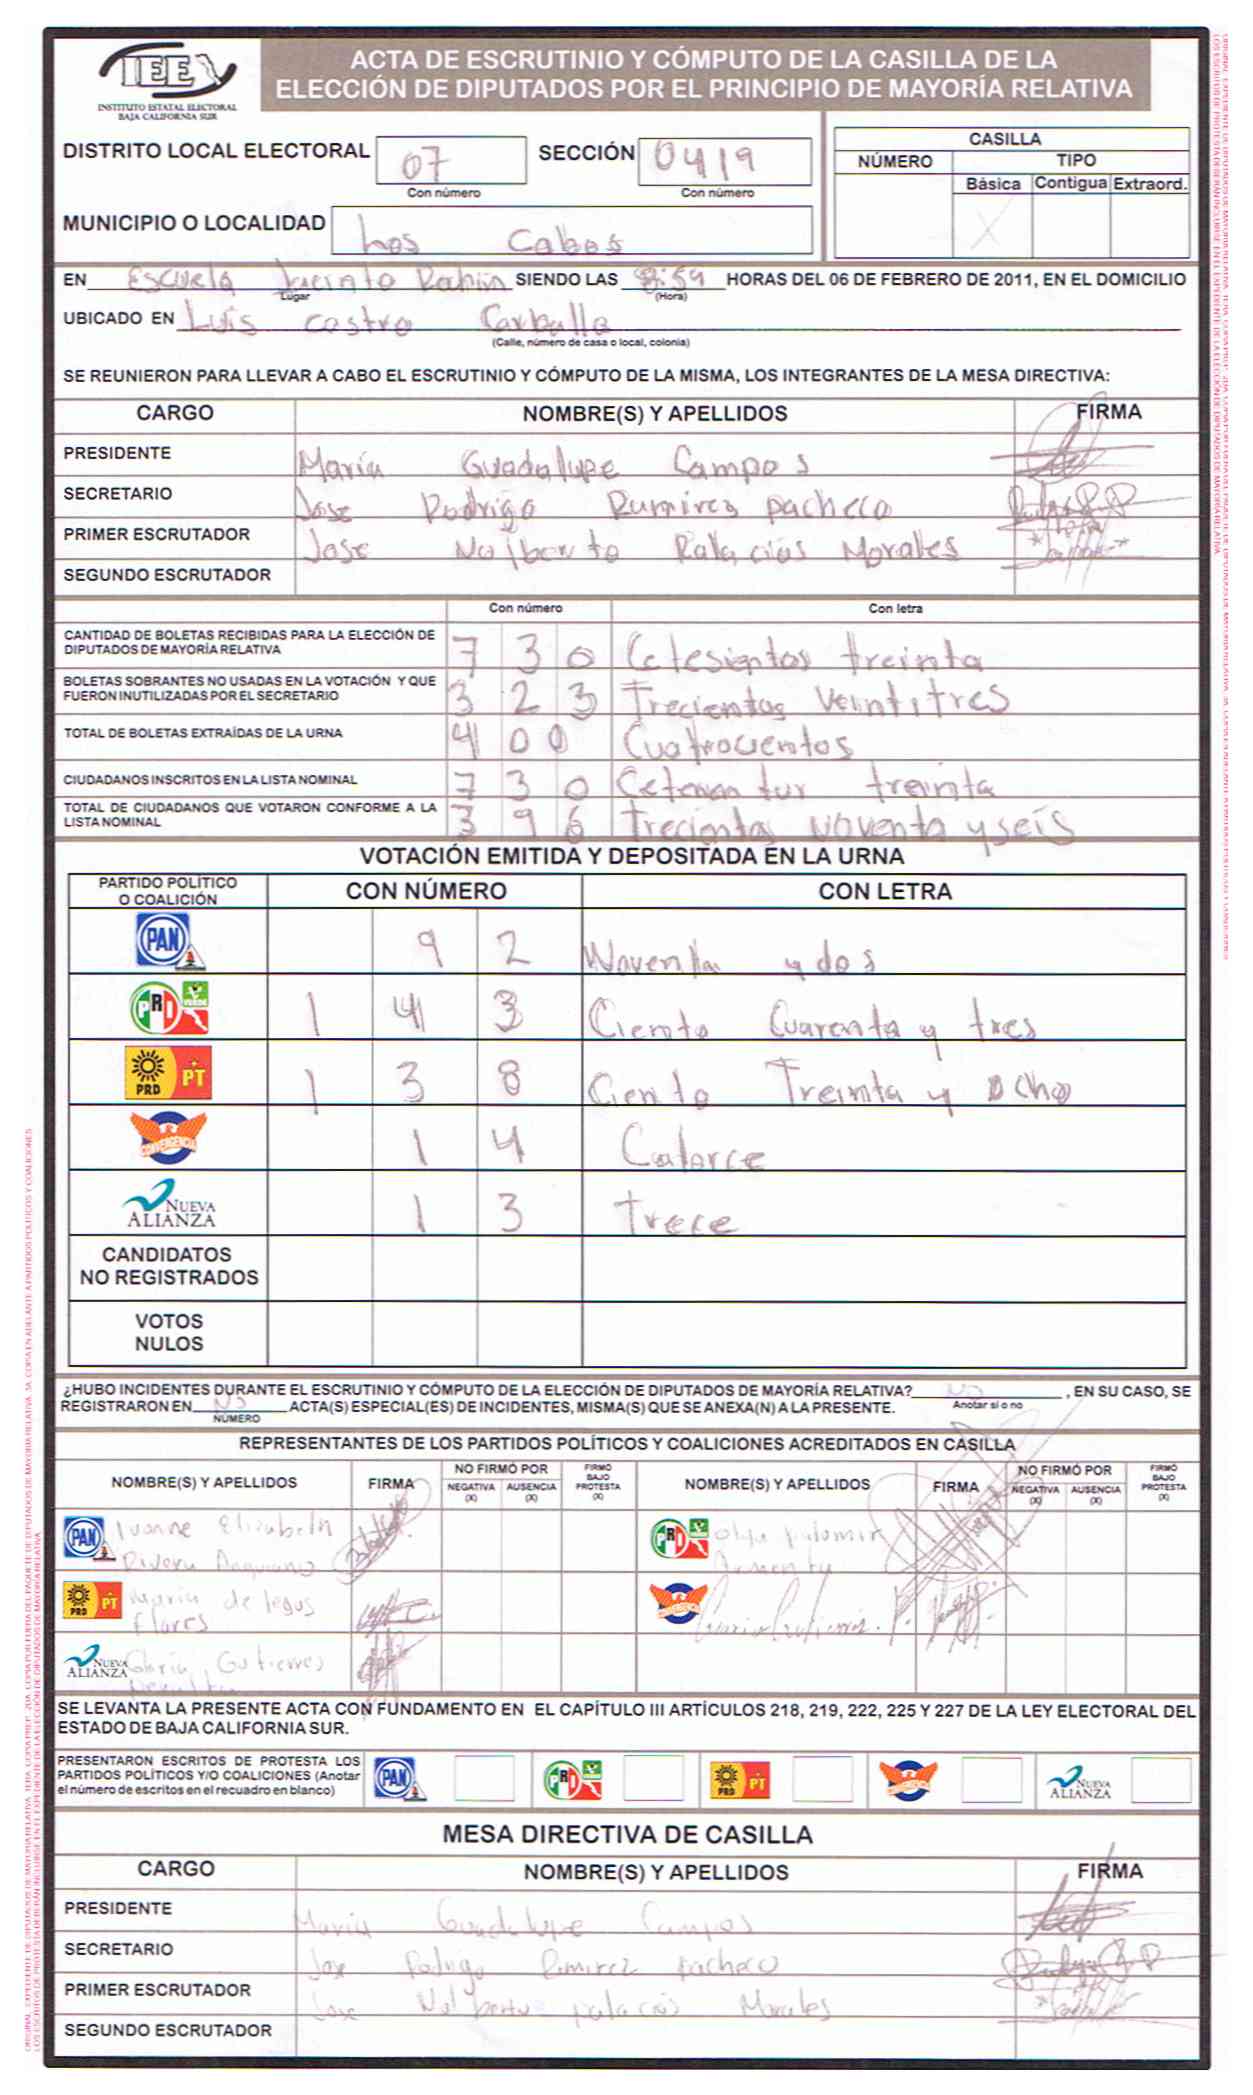 IEE
INSTITUTO ESTATAL ELECTORAL
BAJA CALIFORNIA SUR
ACTA DE ESCRUTINIO Y CÓMPUTO DE LA CASILLA DE LA
ELECCIÓN DE DIPUTADOS POR EL PRINCIPIO DE MAYORÍA RELATIVA
DISTRITO LOCAL ELECTORAL 07 SECCIÓN 0419
Con número Con número
CASILLA
NÚMERO TIPO
Básica Contigua Extraord.
X
MUNICIPIO O LOCALIDAD Los Cabos
EN Escuela Jacinto SIENDO LAS 8:59 HORAS DEL 06 DE FEBRERO DE 2011, EN EL DOMICILIO
Lugar (Hora)
UBICADO EN Luis Castro Carballo
(Calle, número de casa o local, colonia)
SE REUNIERON PARA LLEVAR A CABO EL ESCRUTINIO Y CÓMPUTO DE LA MISMA, LOS INTEGRANTES DE LA MESA DIRECTIVA:
CARGO NOMBRE(S) Y APELLIDOS FIRMA
PRESIDENTE María Guadalupe Campos
SECRETARIO Jose Rodrigo Ramirez pacheco
PRIMER ESCRUTADOR Jose Nolberto Palacios Morales
SEGUNDO ESCRUTADOR
Con número Con letra
CANTIDAD DE BOLETAS RECIBIDAS PARA LA ELECCIÓN DE
DIPUTADOS DE MAYORÍA RELATIVA 7 3 0 Cetesientos treinta
BOLETAS SOBRANTES NO USADAS EN LA VOTACIÓN Y QUE
FUERON INUTILIZADAS POR EL SECRETARIO 3 2 3 Trecientos Veintitres
TOTAL DE BOLETAS EXTRAÍDAS DE LA URNA 4 0 0 Cuatrocientos
CIUDADANOS INSCRITOS EN LA LISTA NOMINAL 7 3 0 treinta
TOTAL DE CIUDADANOS QUE VOTARON CONFORME A LA
LISTA NOMINAL 3 9 6 Trecientos Noventa y seis
VOTACIÓN EMITIDA Y DEPOSITADA EN LA URNA
PARTIDO POLÍTICO
O COALICIÓN CON NÚMERO CON LETRA
PAN 9 2 Noventa y dos
PRI VERDE 1 4 3 Ciento Cuarenta y tres
PRD PT 1 3 8 Ciento Treinta y Ocho
CONVERGENCIA 1 4 Catorce
NUEVA ALIANZA 1 3 trece
CANDIDATOS
NO REGISTRADOS
VOTOS
NULOS
¿HUBO INCIDENTES DURANTE EL ESCRUTINIO Y CÓMPUTO DE LA ELECCIÓN DE DIPUTADOS DE MAYORÍA RELATIVA? NO , EN SU CASO, SE
Anotar si o no
REGISTRARON EN NO ACTA(S) ESPECIAL(ES) DE INCIDENTES, MISMA(S) QUE SE ANEXA(N) A LA PRESENTE.
NÚMERO
REPRESENTANTES DE LOS PARTIDOS POLÍTICOS Y COALICIONES ACREDITADOS EN CASILLA
NOMBRE(S) Y APELLIDOS FIRMA NO FIRMÓ POR NEGATIVA (X) AUSENCIA (X) FIRMÓ BAJO PROTESTA (X) NOMBRE(S) Y APELLIDOS FIRMA NO FIRMÓ POR NEGATIVA (X) AUSENCIA (X) FIRMÓ BAJO PROTESTA (X)
PAN Ivonne Elizabeth PRI olga
Rivera
PRD PT Maria de CONVERGENCIA
Flores
NUEVA ALIANZA Gloria Gutierres
SE LEVANTA LA PRESENTE ACTA CON FUNDAMENTO EN EL CAPÍTULO III ARTÍCULOS 218, 219, 222, 225 Y 227 DE LA LEY ELECTORAL DEL
ESTADO DE BAJA CALIFORNIA SUR.
PRESENTARON ESCRITOS DE PROTESTA LOS
PARTIDOS POLÍTICOS Y/O COALICIONES (Anotar
el número de escritos en el recuadro en blanco)
PAN PRI PRD PT CONVERGENCIA NUEVA ALIANZA
MESA DIRECTIVA DE CASILLA
CARGO NOMBRE(S) Y APELLIDOS FIRMA
PRESIDENTE Maria Guadalupe Campos
SECRETARIO Jose Rodrigo Ramirez pacheco
PRIMER ESCRUTADOR Jose Nolberto palacios Morales
SEGUNDO ESCRUTADOR